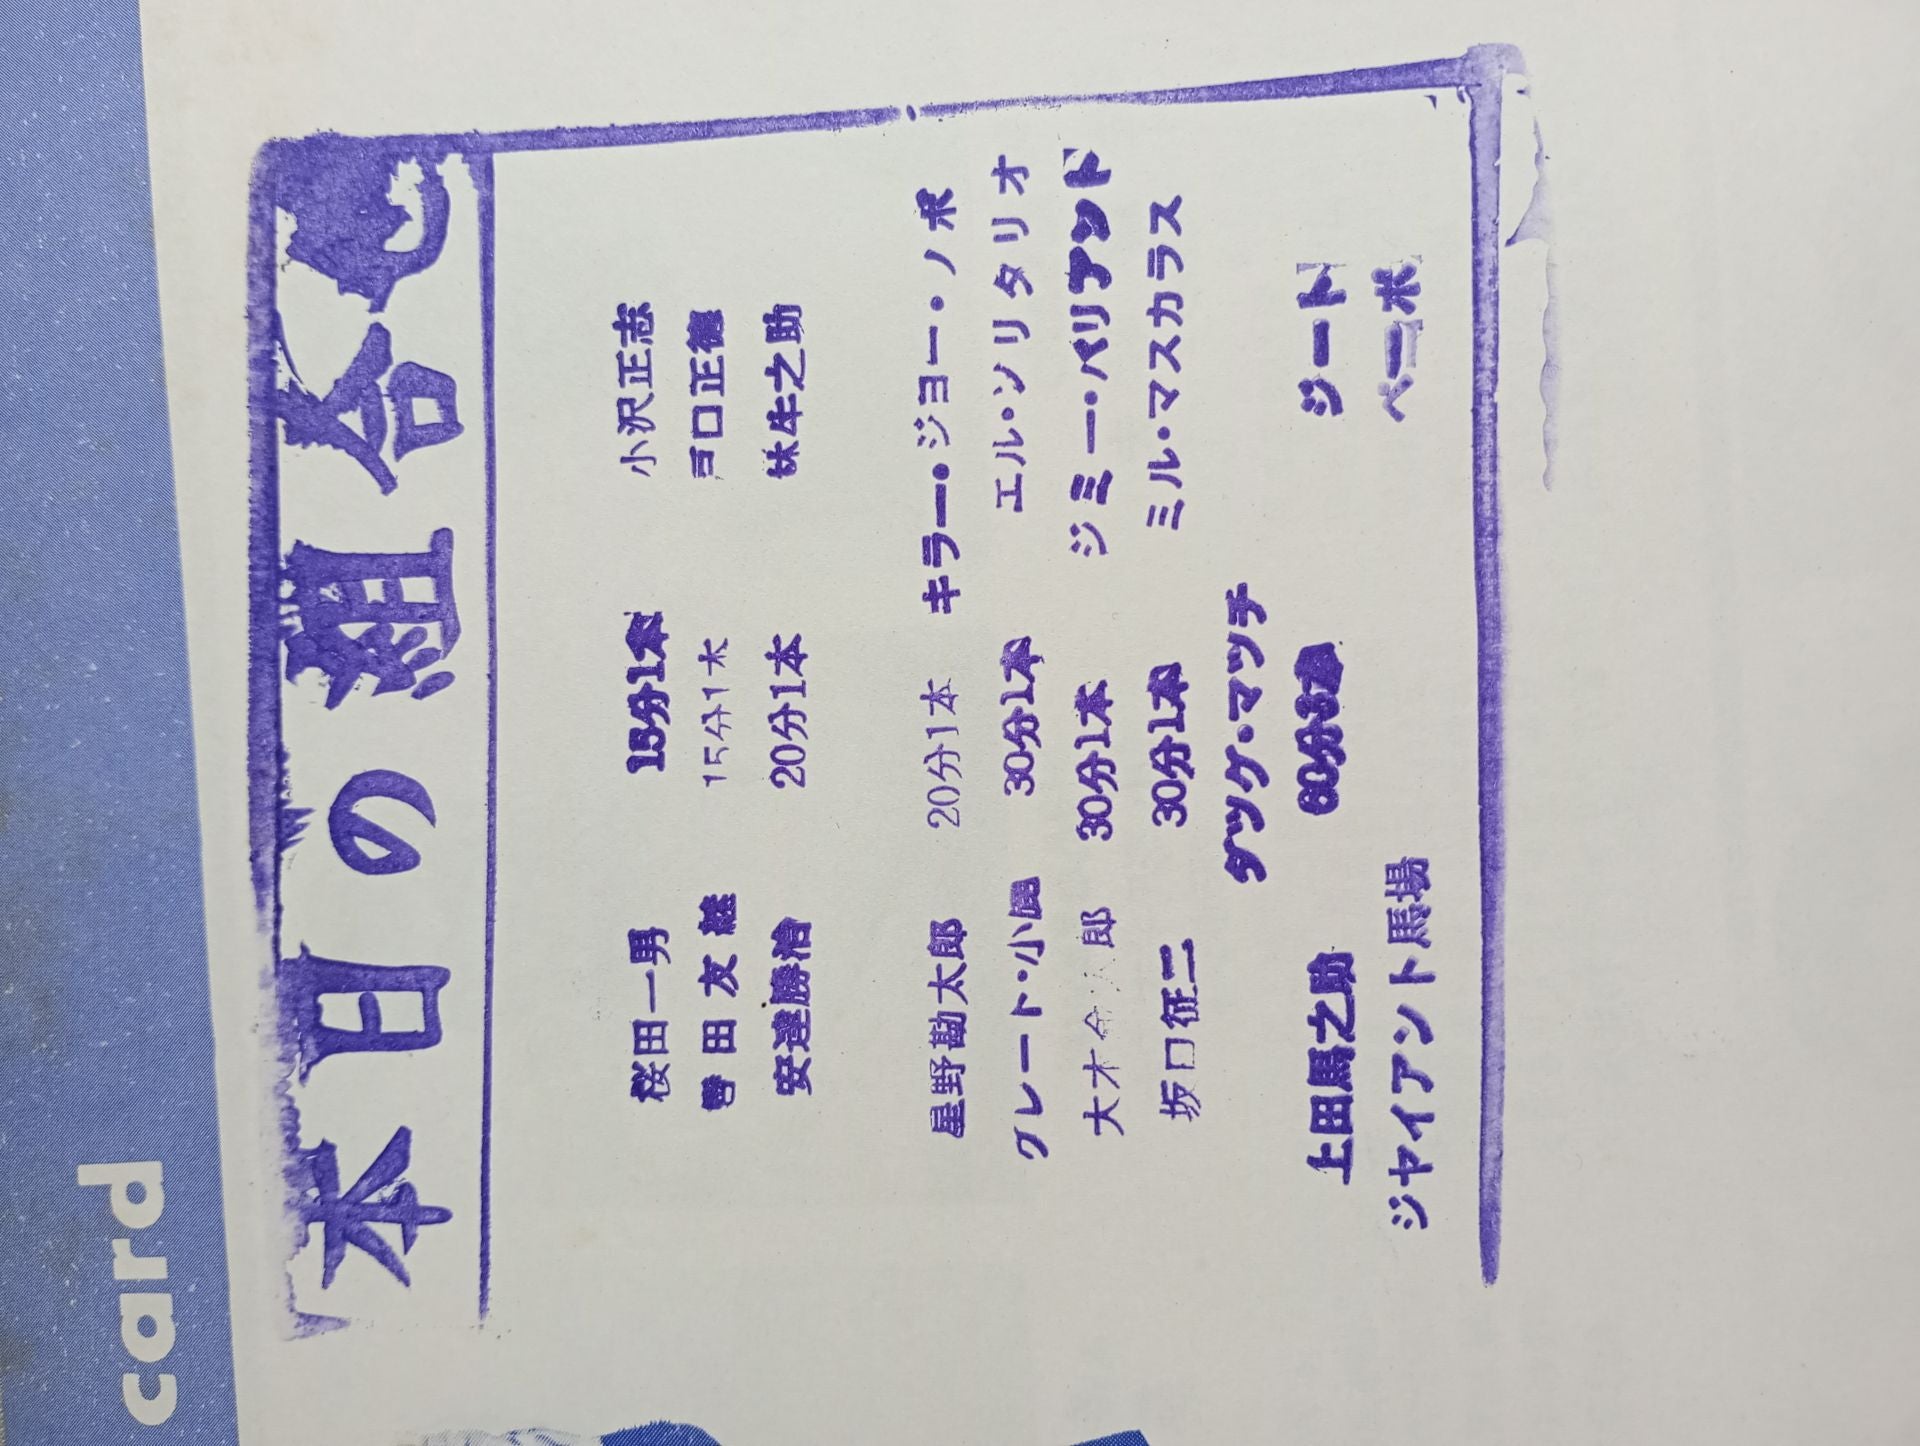 card
本日の組合せ
桜田一男 15分1本 小沢正志
雪田友継 15分1本 戸口正徳
安達勝治 20分1本 林牛之助
星野勘太郎 20分1本 キラー・ジョー・ノボ
グレート・小鹿 30分1本 エル・ソリタリオ
大木金太郎 30分1本 ジミー・バリアント
坂口征二 30分1本 ミル・マスカラス
タッグ・マッチ
上田馬之助 60分3本 ジート
ジャイアント馬場